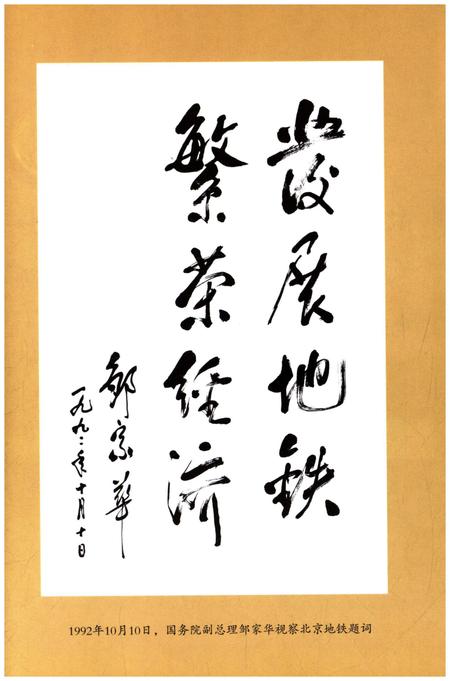 發展地铁
繁荣经济
邹家华
一九九二年十月十日
1992年10月10日，国务院副总理邹家华视察北京地铁题词